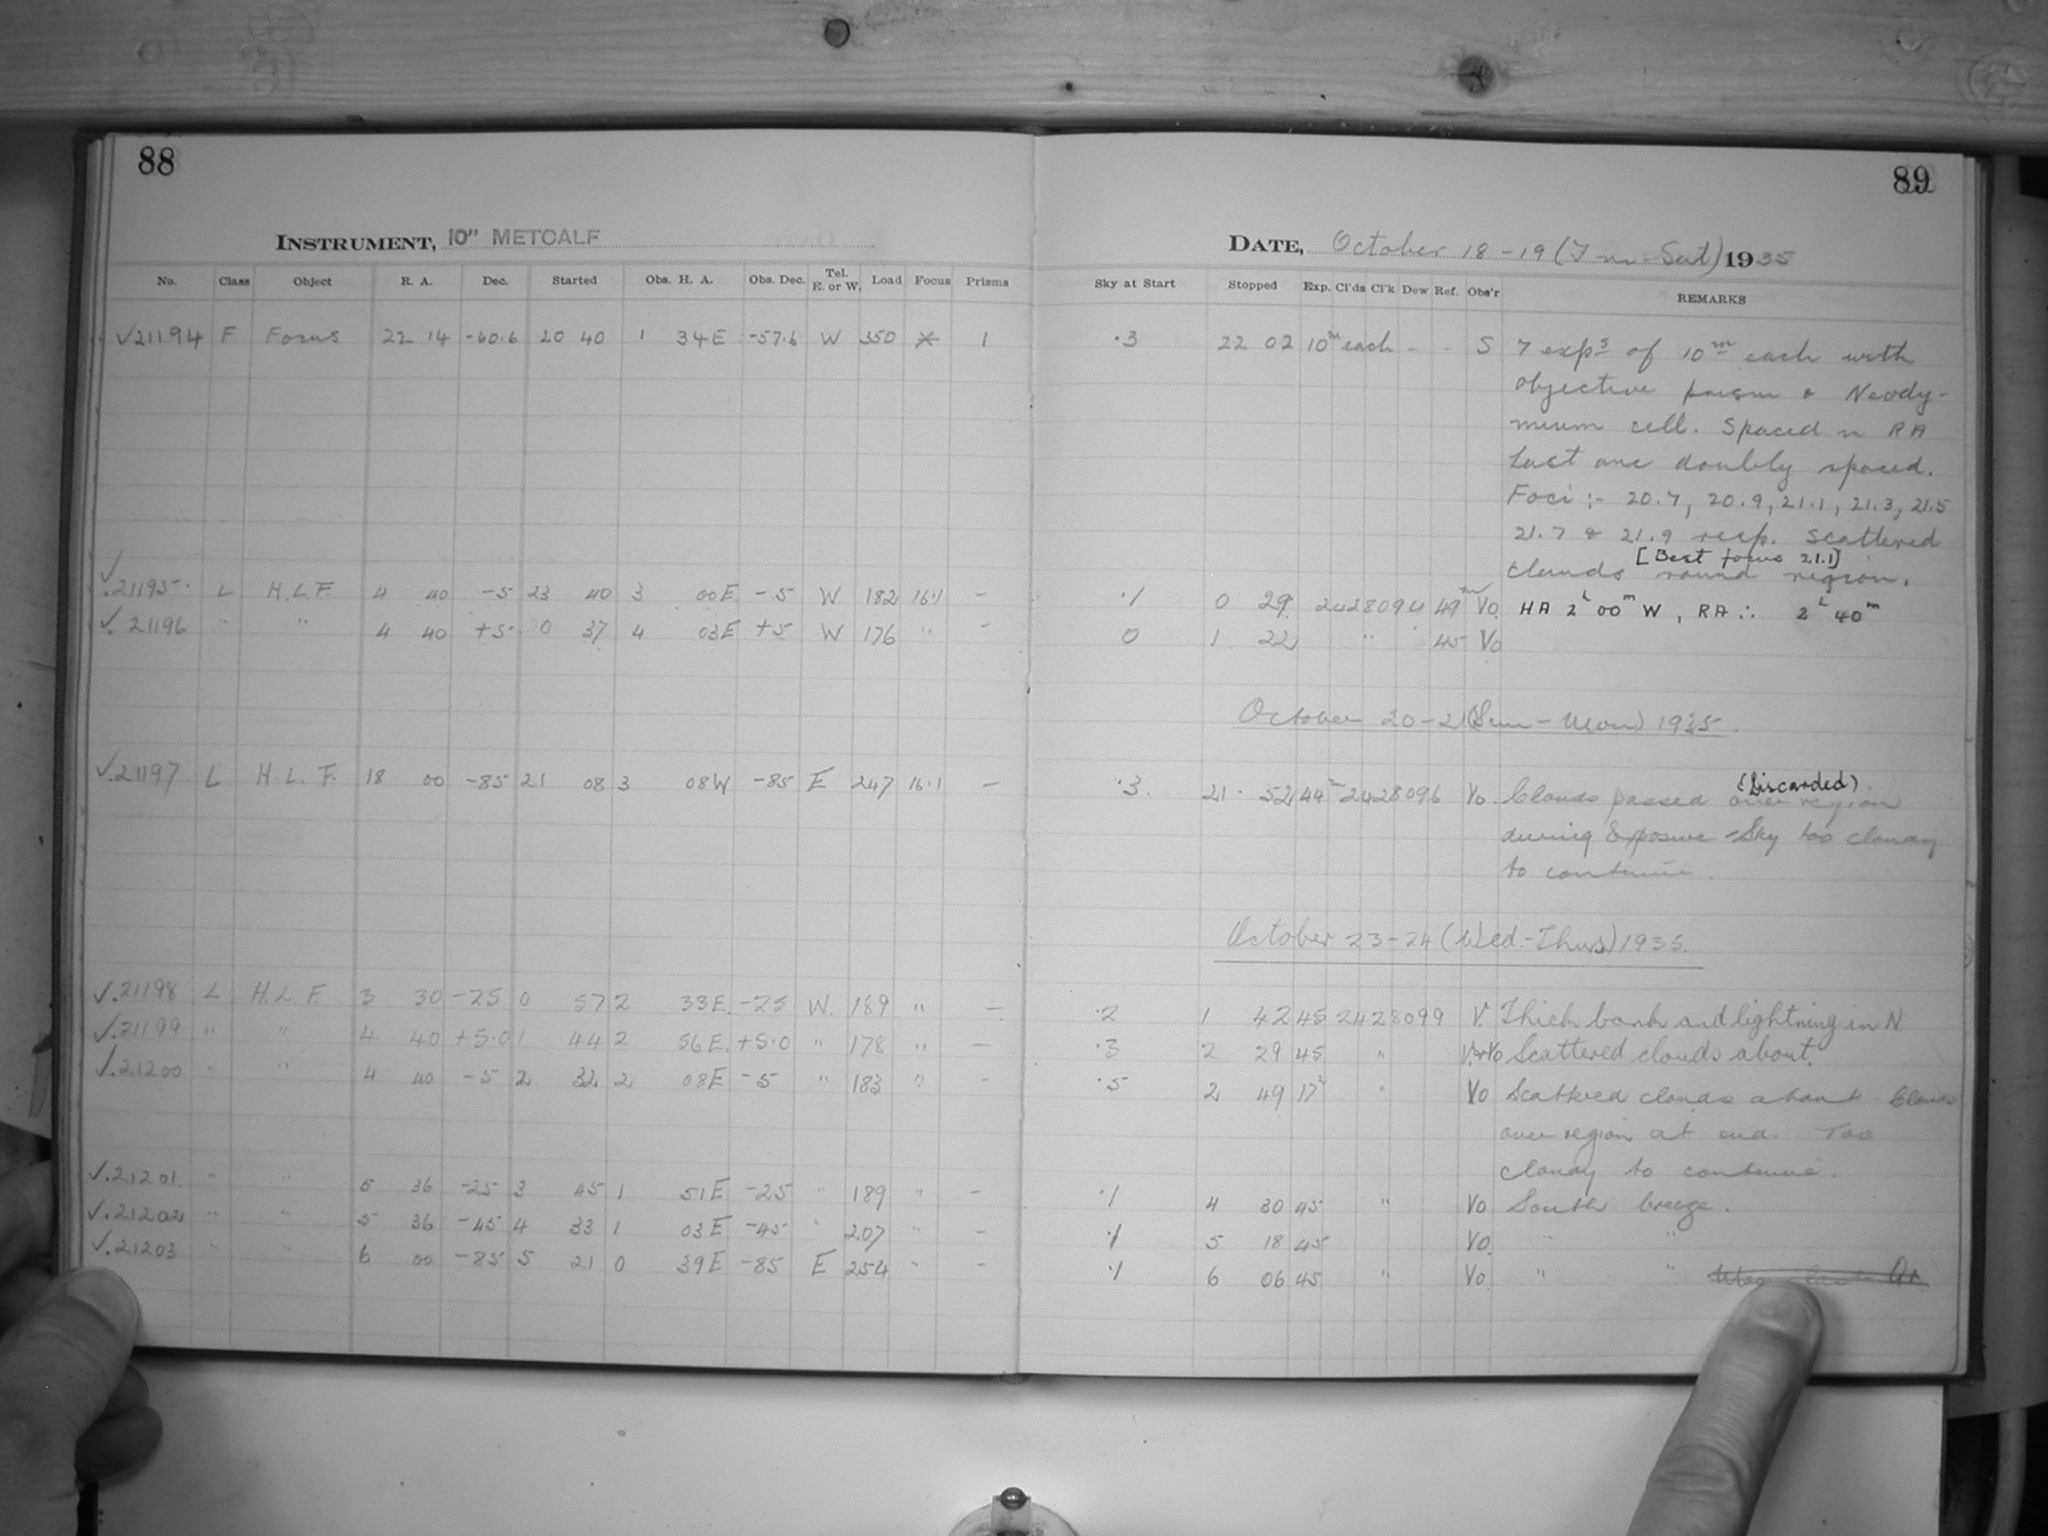 88
89
INSTRUMENT, 10" METCALF
DATE, October 18-19 (Fri-Sat) 1935
No. Class Object R. A. Dec. Started Obs. H. A. Obs. Dec. Tel. E. or W. Load Focus Prisms Sky at Start Stopped Exp. Cl'ds Cl'k Dew Ref. Obs'r REMARKS
✓21194 F Focus 22 14 -60.6 20 40 1 34E -57.6 W 350 * 1 .3 22 02 10m each - - S 7 exps of 10m each with
objective prism & Neody-
mium cell. Spaced in RA
Last one doubly spaced.
Foci :- 20.7, 20.9, 21.1, 21.3, 21.5
21.7 & 21.9 resp. Scattered
[Best focus 21.1]
clouds round region.
✓.21195. L H.L.F. 4 40 -5 23 40 3 00E -5 W 182 16.1 - .1 0 29 2428094 49m Vo. HA 2h 00m W, RA ∴ 2h 40m
✓. 21196 " " 4 40 +5. 0 37 4 03E +5 W 176 " - 0 1 22 " 45 Vo
October 20-21 (Sun-Mon) 1935.
✓.21197 L H.L.F. 18 00 -85 21 08 3 08W -85 E 247 16.1 - .3. 21. 52 44 2428096 Vo. Clouds passed over region
(Discarded)
during Exposure - Sky too cloudy
to continue.
October 23-24 (Wed.-Thurs) 1935.
✓.21198 L H.L.F. 3 30 -25 0 57 2 33E. -25 W. 189 " - .2 1 42 45 2428099 V. Thick bank and lightning in N
✓.21199 " " 4 40 +5.0 1 44 2 56E. +5.0 " 178 " - .3 2 29 45 " V.&Vo Scattered clouds about.
✓.21200 " " 4 40 -5 2 32 2 08E -5 " 183 " - .5 2 49 17 " Vo Scattered clouds about. Clouds
over region at end. Too
cloudy to continue.
✓.21201. " " 5 36 -25 3 45 1 51E -25 " 189 " - .1 4 30 45 " Vo South breeze.
✓.21202 " " 5 36 -45 4 33 1 03E -45 " 207 " - .1 5 18 45 Vo. " "
✓.21203 " " 6 00 -85 5 21 0 39E -85 E 254 " - .1 6 06 45 " Vo. " "